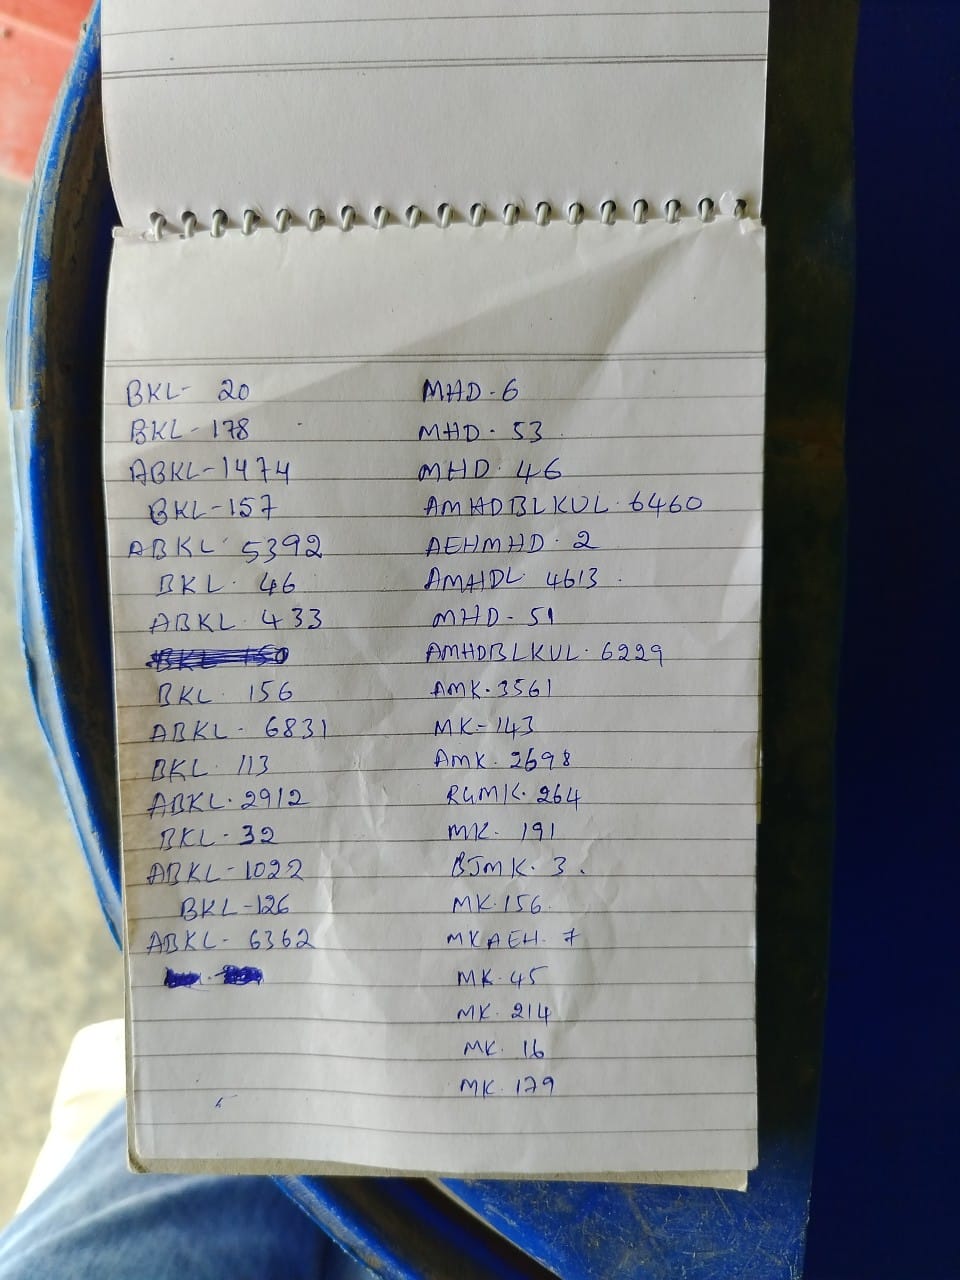 BKL- 20
BKL-178
ABKL-1474
BKL-157
ABKL 5392
BKL. 46
ABKL. 433
BKL. 156
ABKL- 6831
BKL. 113
ABKL. 2912
BKL-32
ABKL-1022
BKL-126
ABKL- 6362
MHD-6
MHD. 53
MHD. 46
AMHDBLKUL. 6460
AEHMHD. 2
AMHDL 4613
MHD-51
AMHDBLKUL. 6229
AMK. 3561
MK-143
AMK. 2698
RGMK. 264
MK. 191
BJMK. 3.
MK. 156
MKAEH. 7
MK. 45
MK. 214
MK. 16
MK. 179